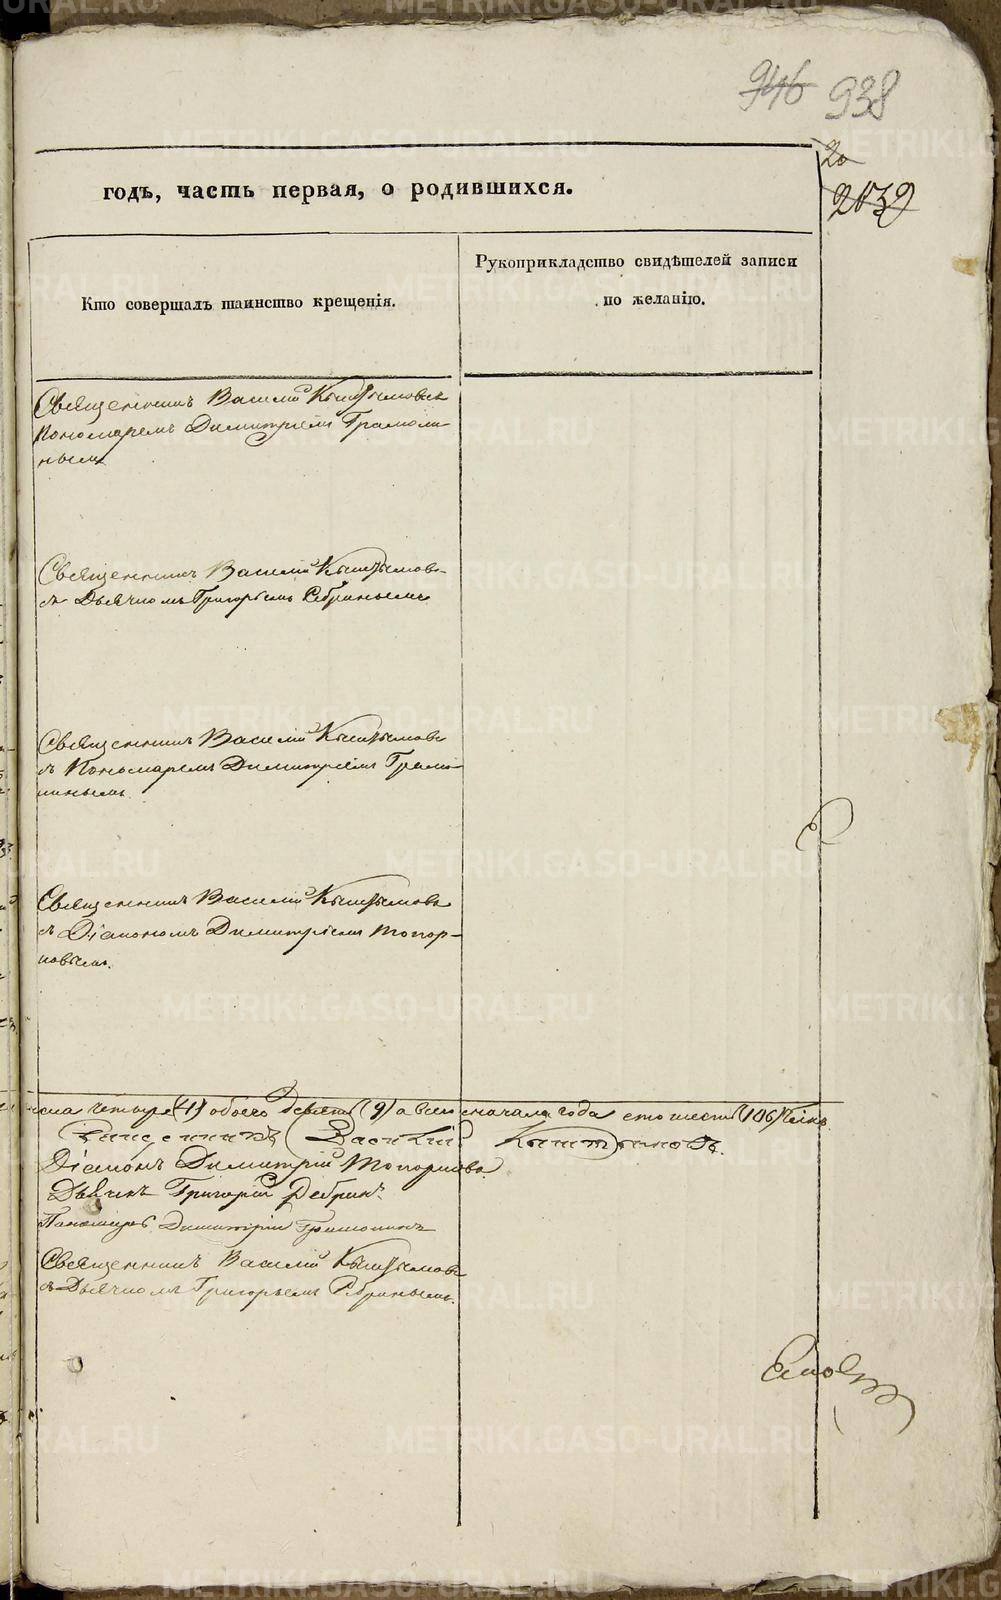 946 938
20
2039
годъ, часть первая, о родившихся.
Кто совершалъ таинство крещенія.
Рукоприкладство свидѣтелей записи
по желанію.
Священникъ Василій Кыштымовъ
Пономаремъ Димитріемъ Грамоли-
нымъ
Священникъ Василій Кыштымовъ
съ Дьячкомъ Григорьемъ Ребринымъ
Священникъ Василій Кыштымовъ
съ Пономаремъ Димитріемъ Грамо-
линымъ.
Священникъ Василій Кыштымовъ
съ Діакономъ Димитріемъ Топор-
ковымъ.
четыре (4) обоего девять (9) а всего сначала года сто шесть (106)
Священникъ Василій Кыштымовъ.
Діаконъ Димитрій Топорковъ.
Дьячекъ Григорій Ребринъ
Пономарь Димитрій Грамолинъ
Священникъ Василій Кыштымовъ
съ Дьячкомъ Григорьемъ Ребринымъ.
METRIKI.GASO-URAL.RU